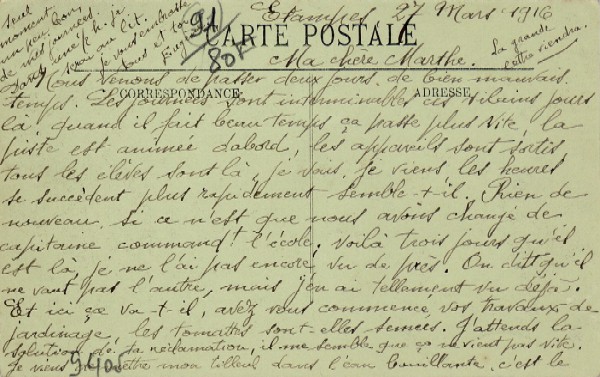 Etampes 27 Mars 1916
CARTE POSTALE
91
80F
La grande
viendra.
Ma chère Marthe.
Nous venons de passer deux jours de bien mauvais
CORRESPONDANCE
ADRESSE
temps. Les journées sont interminables ces vilains jours
là, quand il fait beau temps ça passe plus vite, la
piste est animée dabord, les appareils sont sortis,
tous les élèves sont là, je vais, je viens, les heures
se succèdent plus rapidement semble-t-il. Rien de
nouveau, si ce n'est que nous avons changé de
capitaine command! l'école, voilà trois jours qu'il
est là, je ne l'ai pas encore vu de près. On dit qu'il
ne vaut pas l'autre, mais j'en ai tellement vu déjà.
Et ici ça va-t-il, avez vous commencé, vos travaux de
jardinage, les tomates sont-elles semées. J'attends la
solution de ta réclamation, il me semble que ça ne vient pas vite.
Je viens mettre mon tilleul dans l'eau bouillante, c'est le
9405
seul
moment
un peu bon
de mes journées.
serai au lit.
je vous embrasse
tous et toi